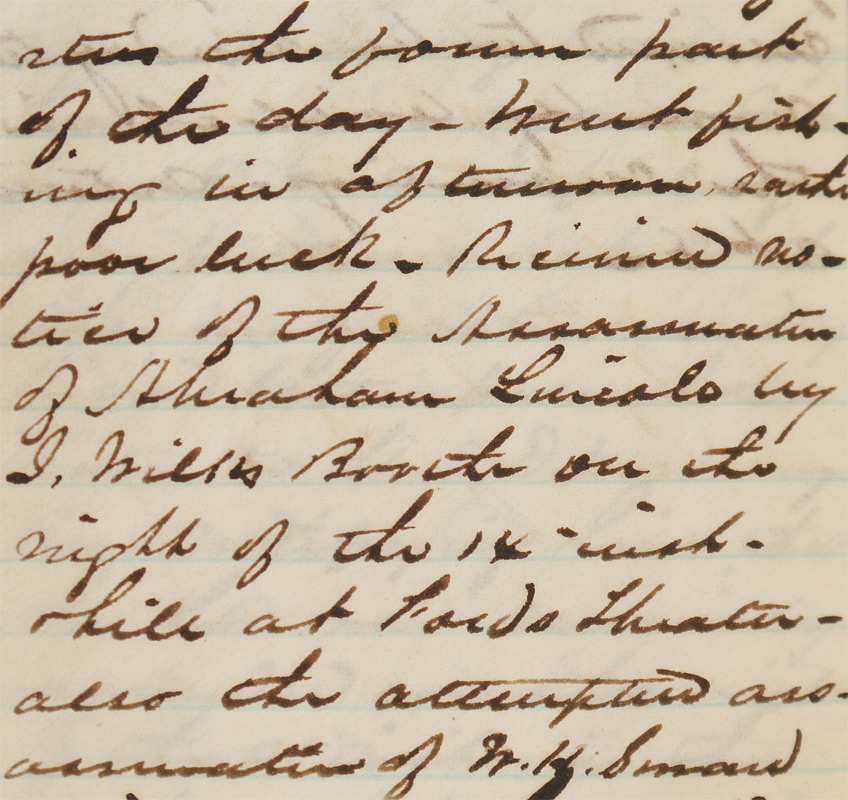 the forenn part
of the day - Went fish-
ing in afternoon, rather
poor luck - Received no-
tice of the Assassination
of Abraham Lincoln by
J. Wilkes Booth on the
night of the 14" inst.
while at Fords Theater -
also the attempted ass-
assination of W. H. Seward